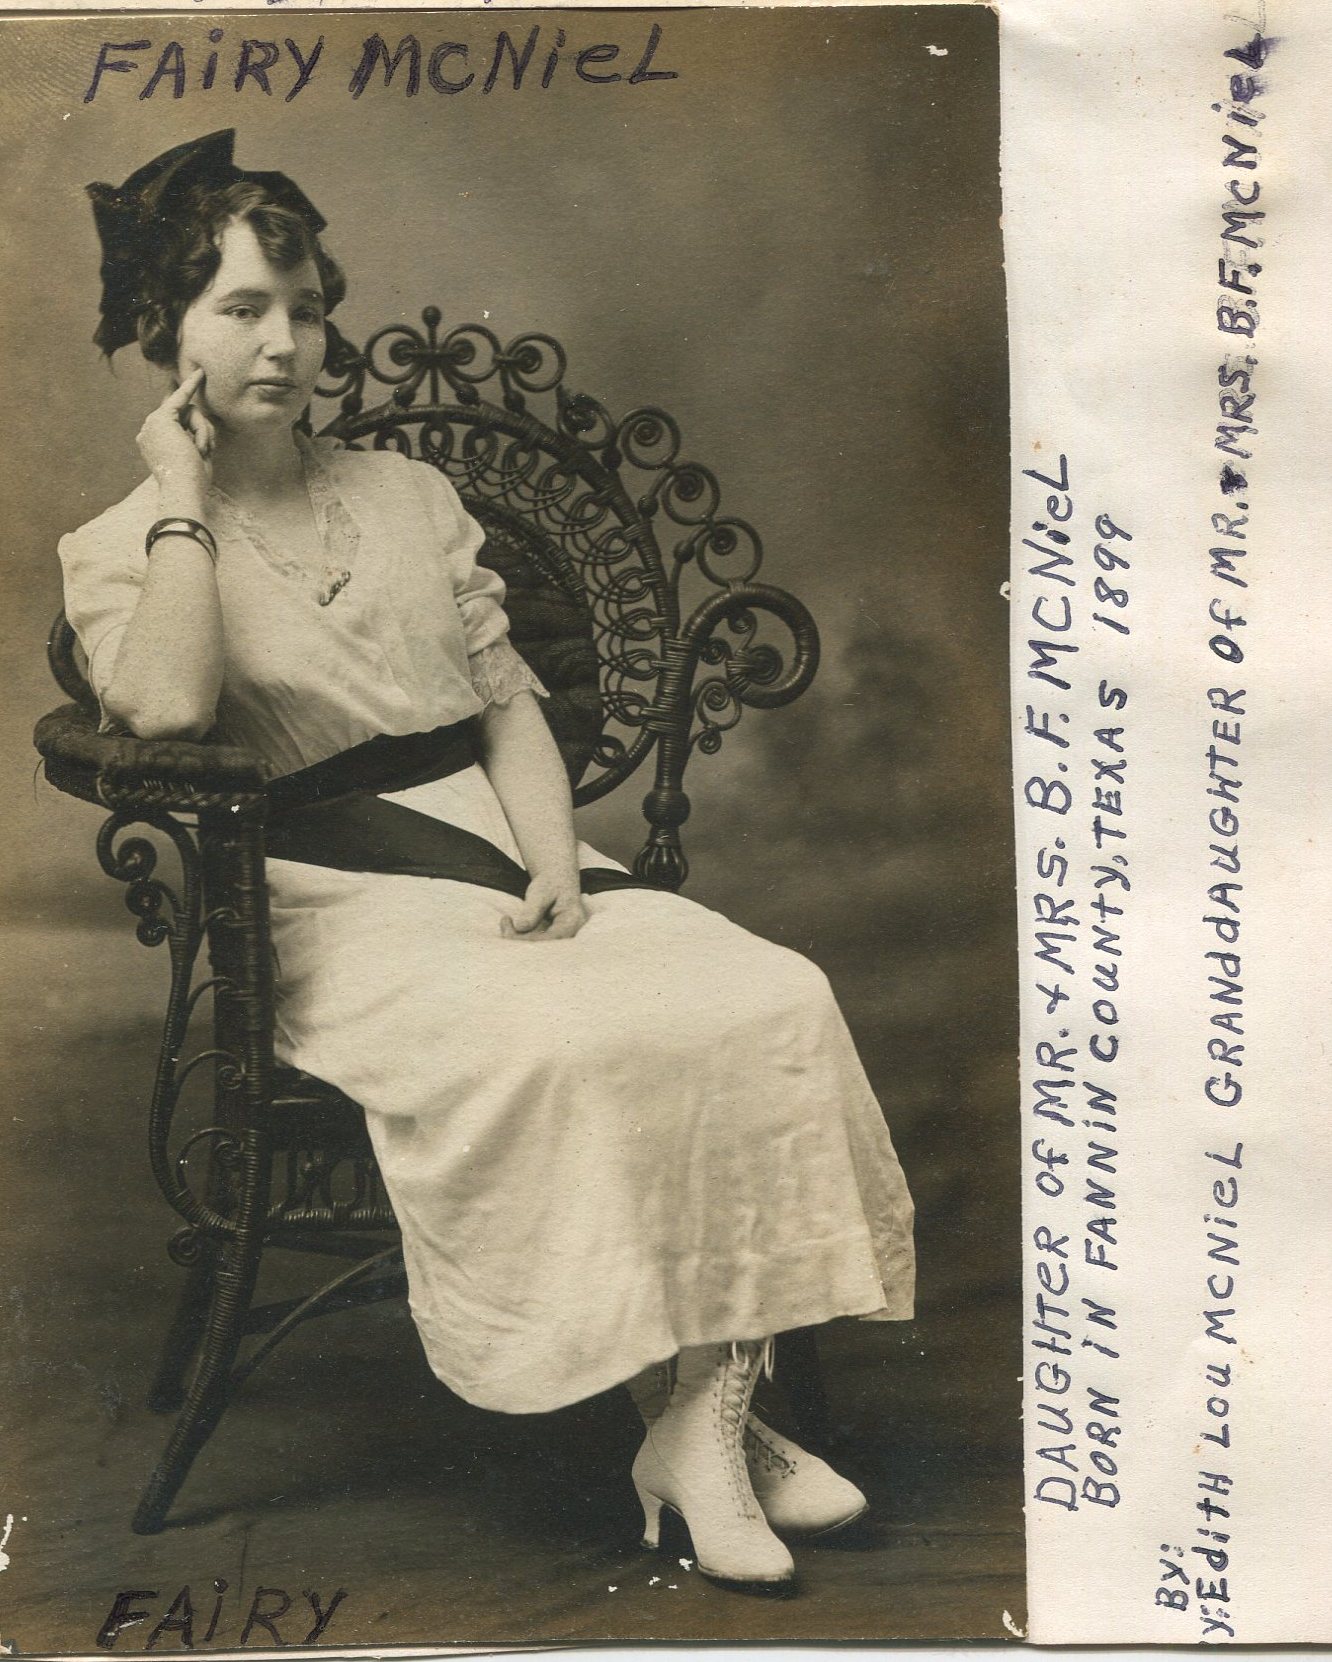 FAiRY MCNieL
FAiRY
DAUGHTeR Of MR. + MRS. B. F. MCNieL
BORN iN FANNiN COUNTY, TEXAS 1899
BY:
Y: Edith LOU MCNieL GRANddAUGHTER Of MR. & MRS. B.F. MCNieL